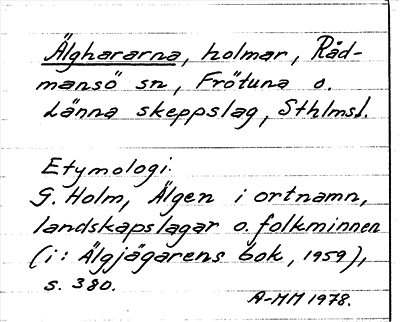 Älghararna, holmar, Råd-
mansö sn, Frötuna o.
Länna skeppslag, Sthlmsl.
Etymologi:
G. Holm, Älgen i ortnamn,
landskapslagar o. folkminnen
(i: Älgjägarens bok, 1959),
s. 380.
A-MM 1978.